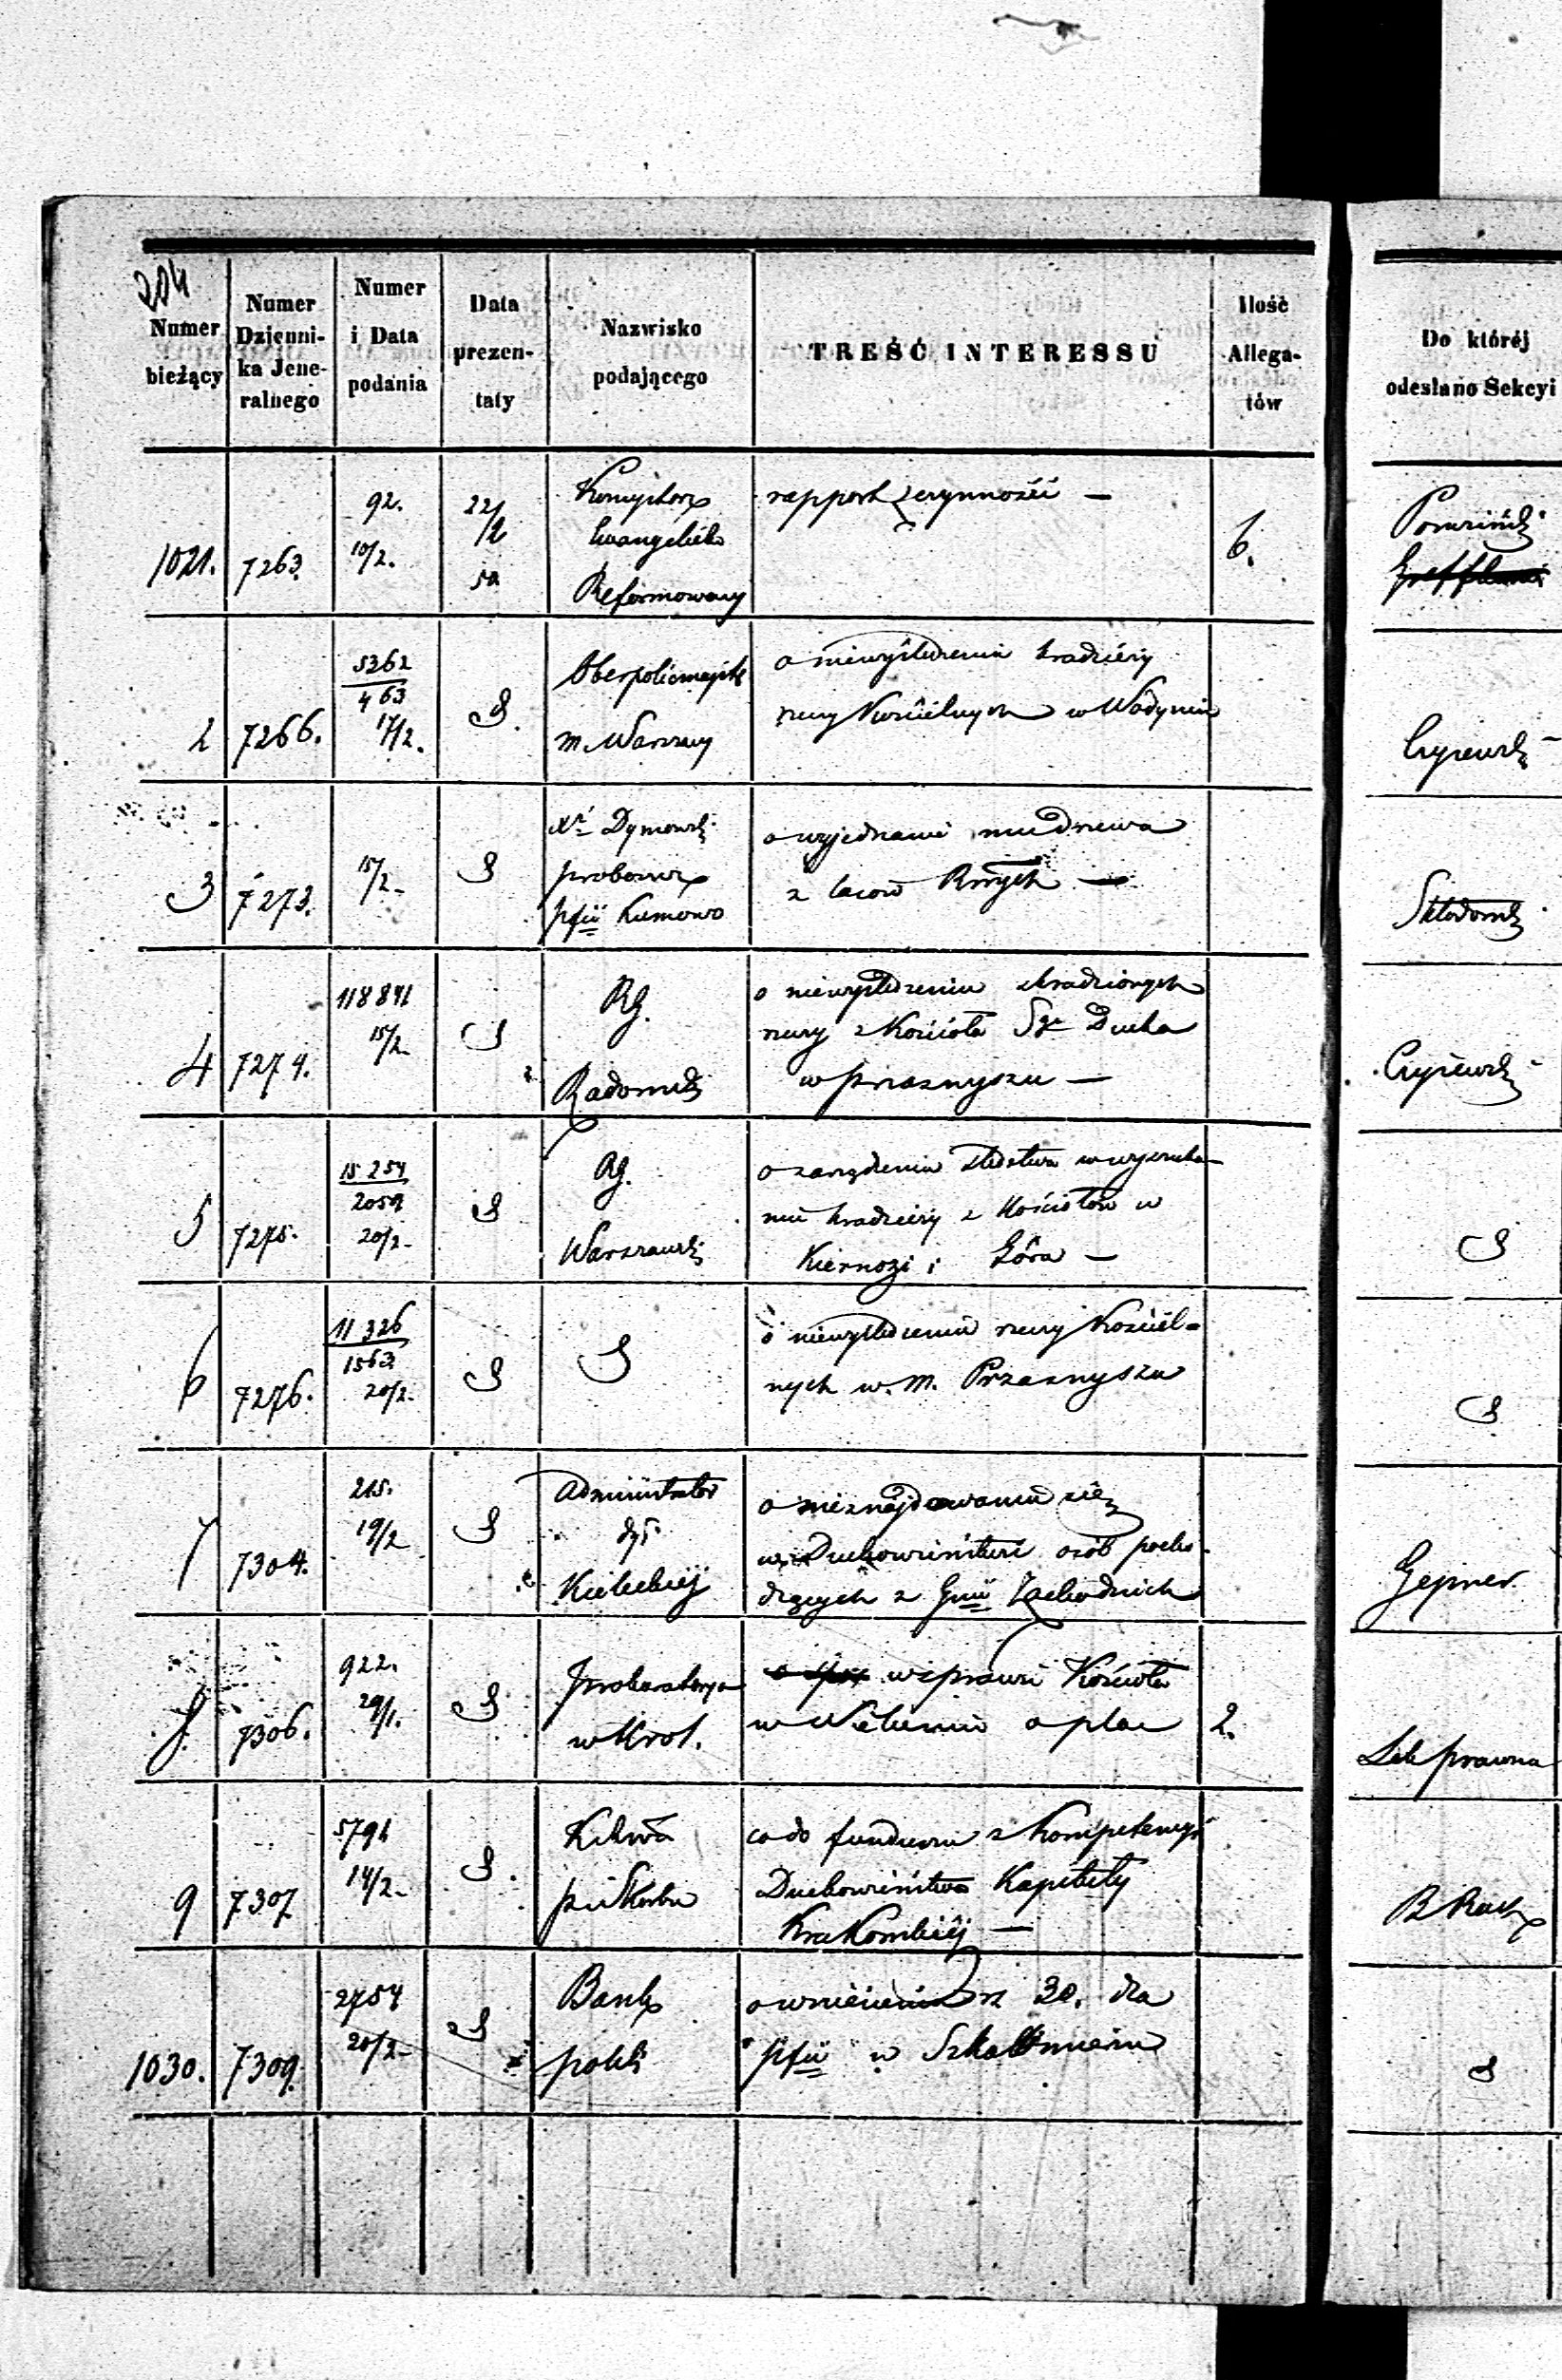 204
Numer bieżący | Numer Dzienni-ka Jene-ralnego | Numer i Data podania | Data prezen-taty | Nazwisko podającego | TREŚĆ INTERESSU | Ilość Allega-tów | Do któréj odesłano Sekcyi
1021. | 7263. | 92. 10/2. | 22/2 | Konsystorz
Ewangelicko
Reformowany | rapport z czynności — | 6.
2 | 7266. | 5362/463 17/2. | S. | Oberpolicmajster
m. Warszawy | o niewyśledzeniu kradzieży
rzeczy Kościelnych w Wodyniu | Czyżewski
3 | 7273. | 15/2 | S | Xdz Dymowski
proboszcz
pfii Kumowo | o wyjednanie mu drzewa
z lasów Rządych — | Skłodowski
4 | 7274. | 118841 15/2. | S | Rg.
Radomski | o niewyśledzeniu skradzionych
rzeczy z Kościoła Sgo Ducha
w Przasnyszu — | Czyżewski
5 | 7275. | 15254/2059 20/2 | S | Rg.
Warszawski | o zarządzeniu śledztwa w wyszuka-
niu kradzieży z Kościołów w
Kiernozi i Góra — | S
6 | 7276. | 11326/1563 20/2. | S | S | o niewyśledzeniu rzeczy Kościel-
nych w m. Przasnyszu | S
7 | 7304. | 215. 19/2 | S | Administrator
dyi
Kieleckiej | o nieznajdowaniu się
w Duchowieństwie osób pocho-
dzących z Gnii Zachodnich | Gepner
8. | 7306. | 922. 29/1. | S | Prokuratorya
w Król. | w sprawie Kościoła
w Wieluniu o plac | 2. | prawna
9 | 7307 | 5791 14/2 | S. | K Rwa
p i Skarbu | co do funduszu z Kompetencyi
Duchowieństwa Kapituły
Krakowskiej — | B Rach
1030. | 7309. | 2754 20/2 | S | Bank
polski | o wniesieniu rs 30. dla
pfii w Szkalbmierzu | S